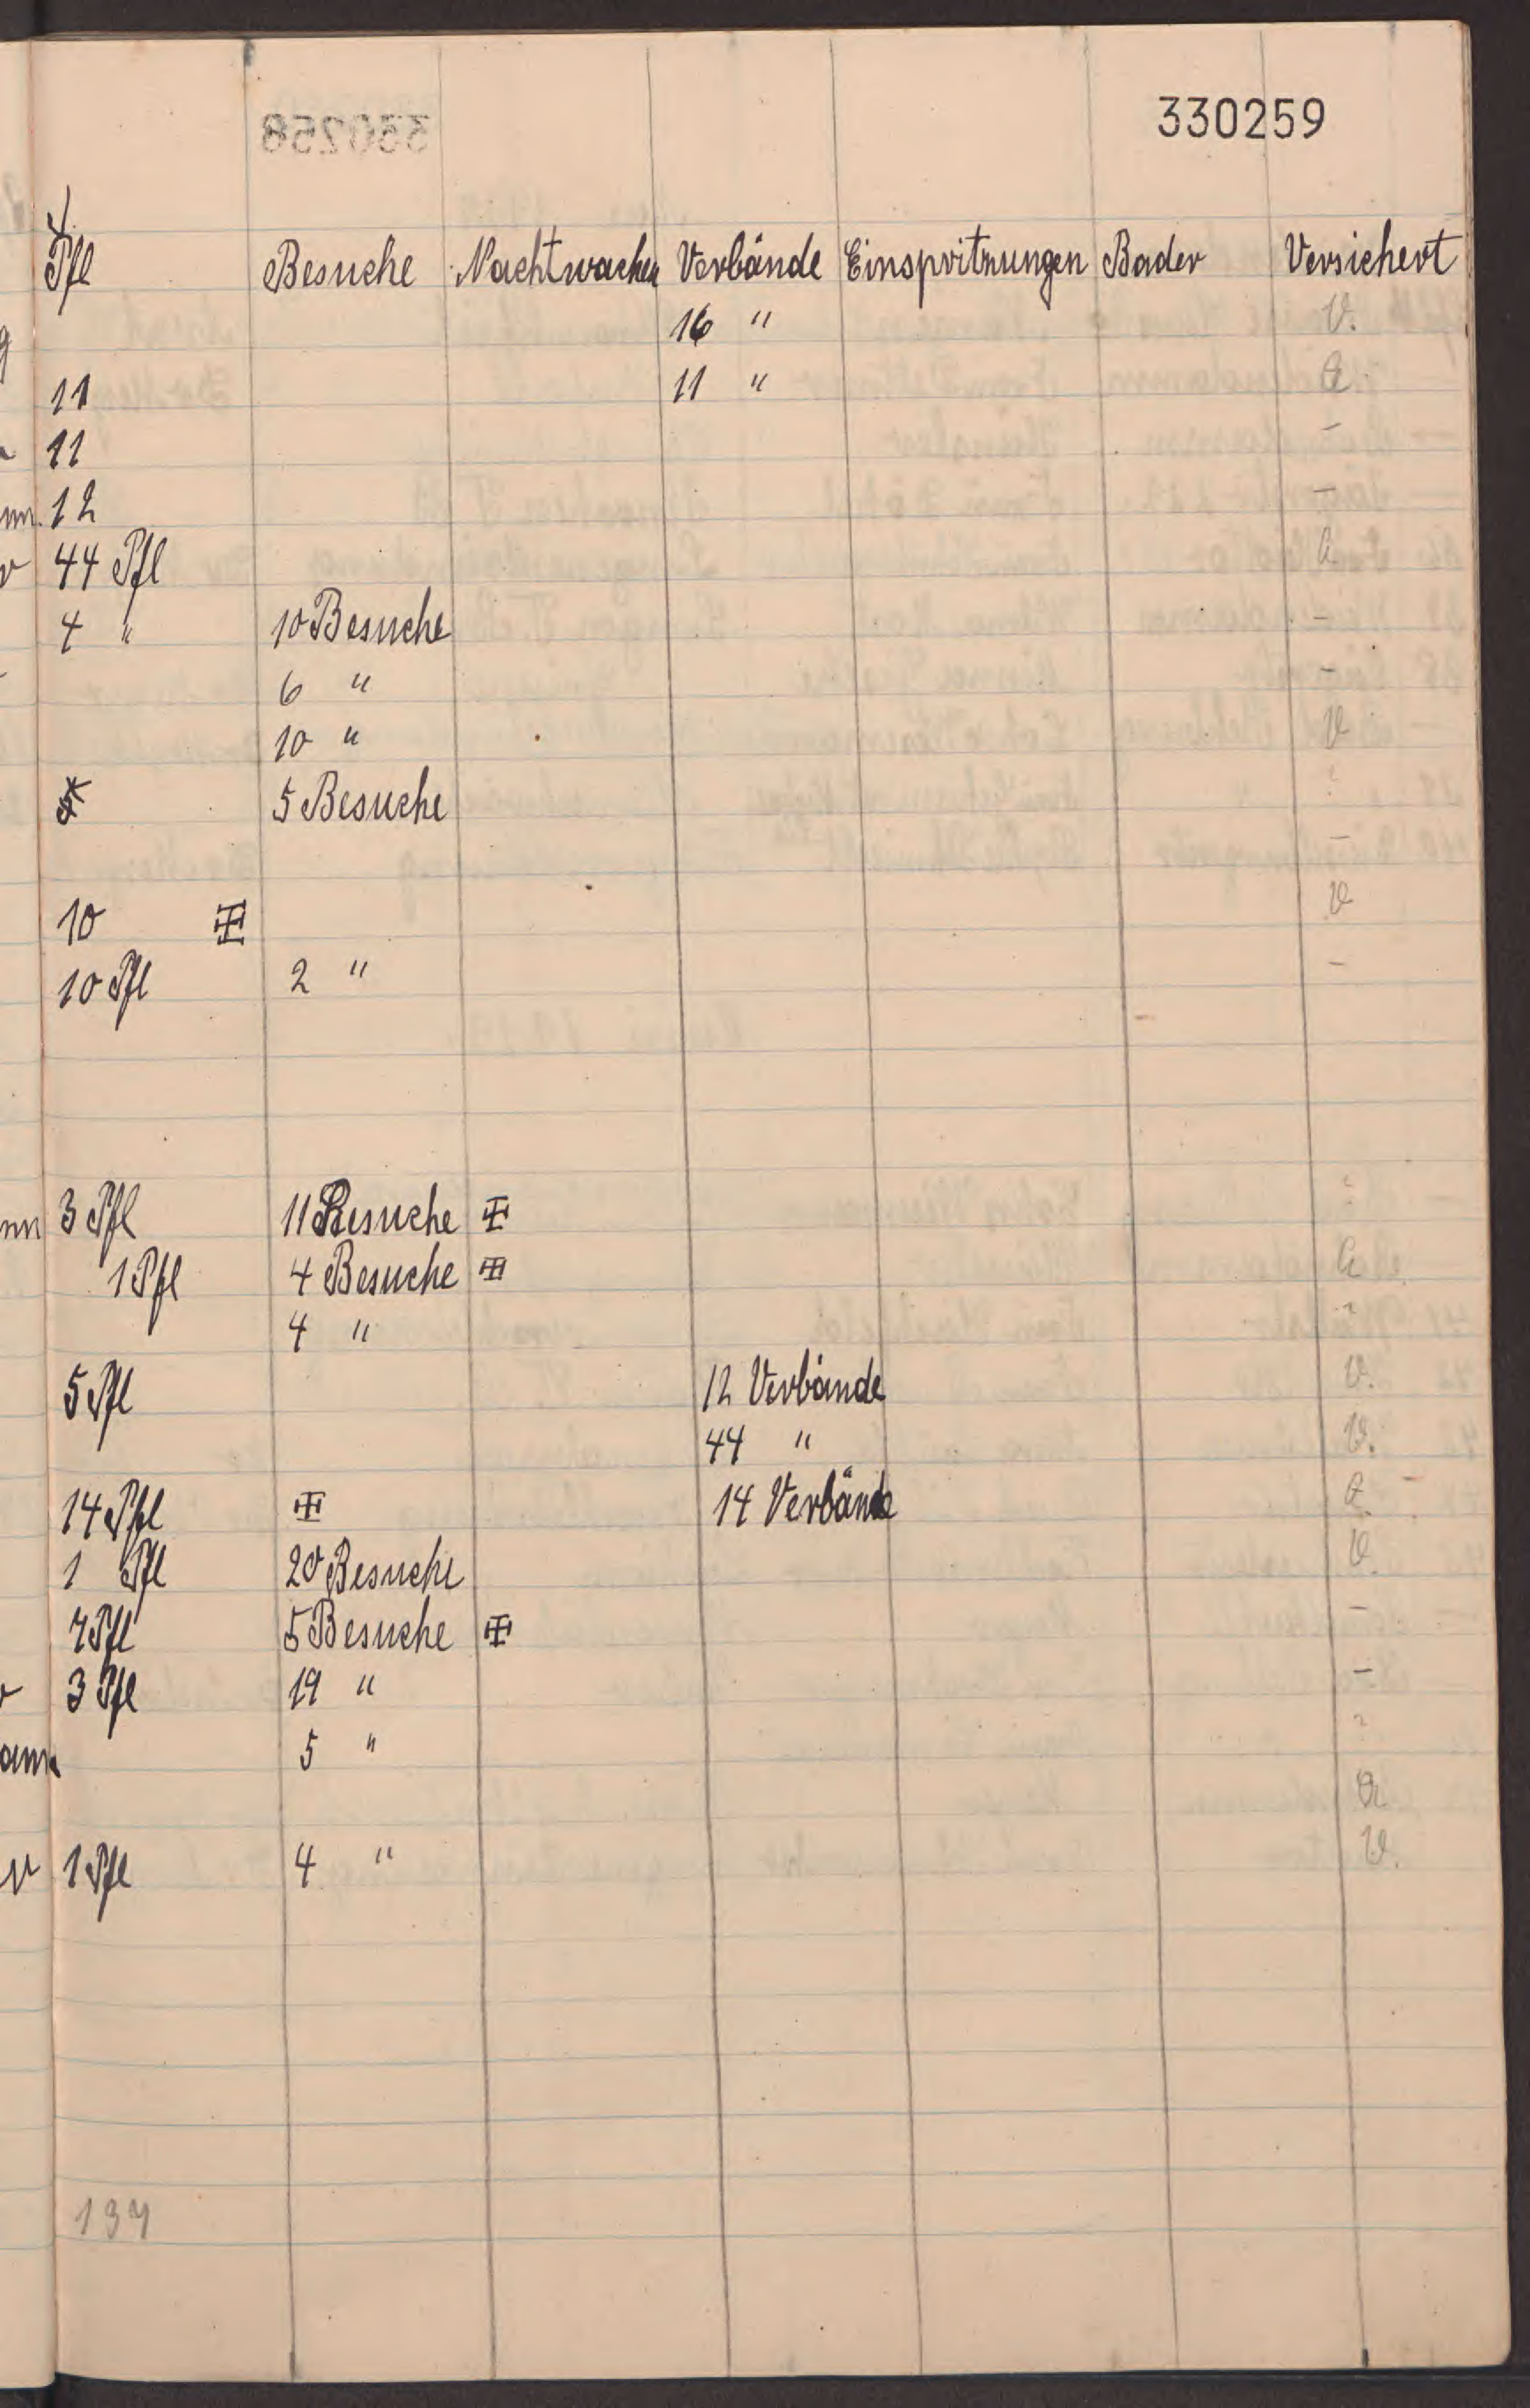 330259
Pfl Besuche Nachtwachen Verbände Einspritzungen Bader Versichert
16 " V.
11 11 " a.
11 -
12 -
44 Pfl a
4 " 10 Besuche -
6 " -
10 " V
5 Besuche
-
10 V
10 Pfl 2 " -
3 Pfl 11 Besuche
1 Pfl 4 Besuche a
4 "
5 Pfl 12 Verbände V.
44 " V.
14 Pfl 14 Verbände a.
1 Pfl 20 Besuche V.
7 Pfl 5 Besuche -
3 Pfl 19 " -
5 "
a
1 Pfl 4 " V.
137